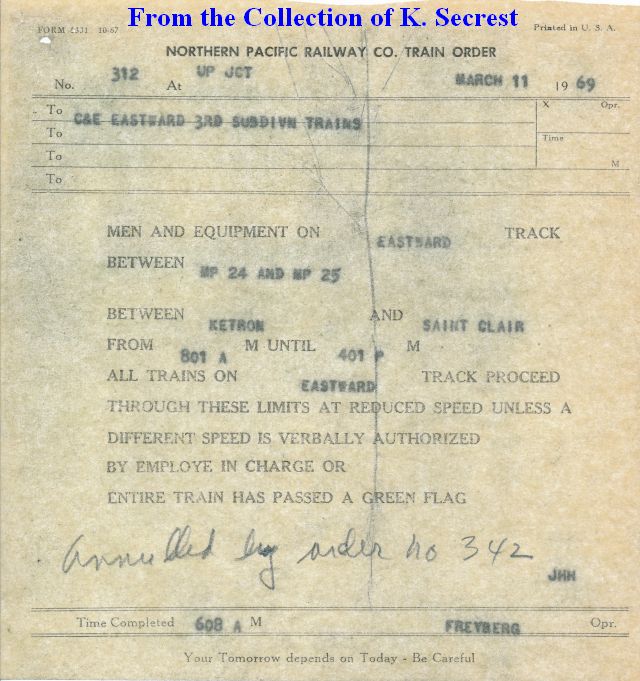 From the Collection of K. Secrest
FORM 2531 10-67 Printed in U. S. A.
NORTHERN PACIFIC RAILWAY CO. TRAIN ORDER
No. 312 At UP JCT MARCH 11 1969
To C&E EASTWARD 3RD SUBDIVN TRAINS X Opr.
To Time
To M
To
MEN AND EQUIPMENT ON EASTWARD TRACK
BETWEEN MP 24 AND MP 25
BETWEEN KETRON AND SAINT CLAIR
FROM 801 A M UNTIL 401 P M
ALL TRAINS ON EASTWARD TRACK PROCEED
THROUGH THESE LIMITS AT REDUCED SPEED UNLESS A
DIFFERENT SPEED IS VERBALLY AUTHORIZED
BY EMPLOYE IN CHARGE OR
ENTIRE TRAIN HAS PASSED A GREEN FLAG
Annulled by order no 342
JHH
Time Completed 608 A M FREYBERG Opr.
Your Tomorrow depends on Today - Be Careful